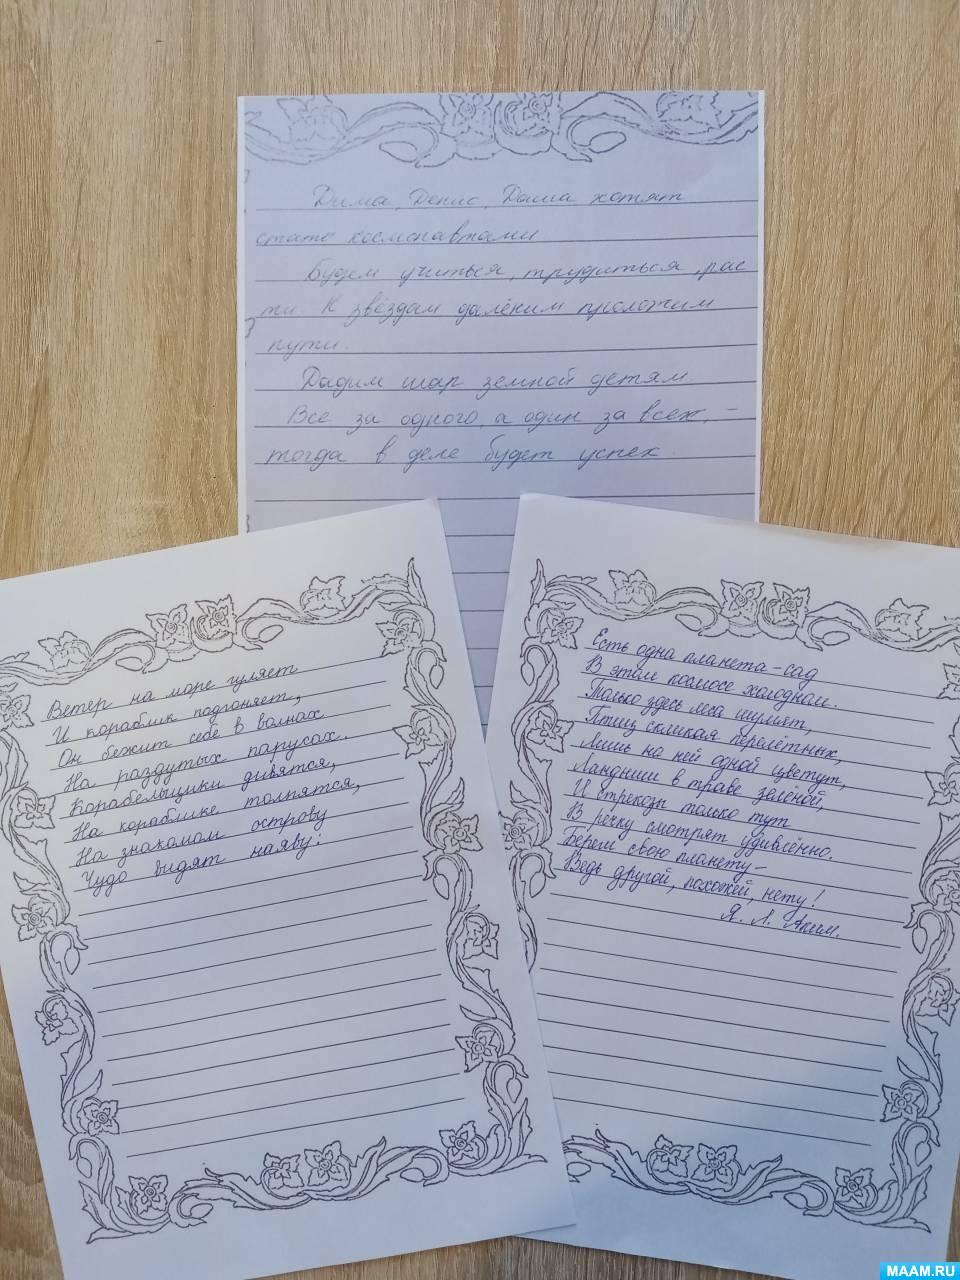 Дима, Денис, Даша хотят
стать космонавтами.
Будем учиться, трудиться, рас
ти. К звёздам далёким проложим
пути.
Дадим шар земной детям.
Все за одного, а один за всех, -
тогда в деле будет успех.
Ветер на море гуляет
И кораблик подгоняет,
Он бежит себе в волнах
На раздутых парусах.
Корабельщики дивятся,
На кораблике толпятся,
На знакомом острову
Чудо видят наяву:
Есть одна планета-сад
В этом космосе холодном.
Только здесь леса шумят,
Птиц скликая перелётных,
Лишь на ней одной цветут,
Ландыши в траве зелёной,
И стрекозы только тут
В речку смотрят удивлённо.
Береги свою планету-
Ведь другой, похожей, нету!
Я. Л. Аким.
MAAM.RU